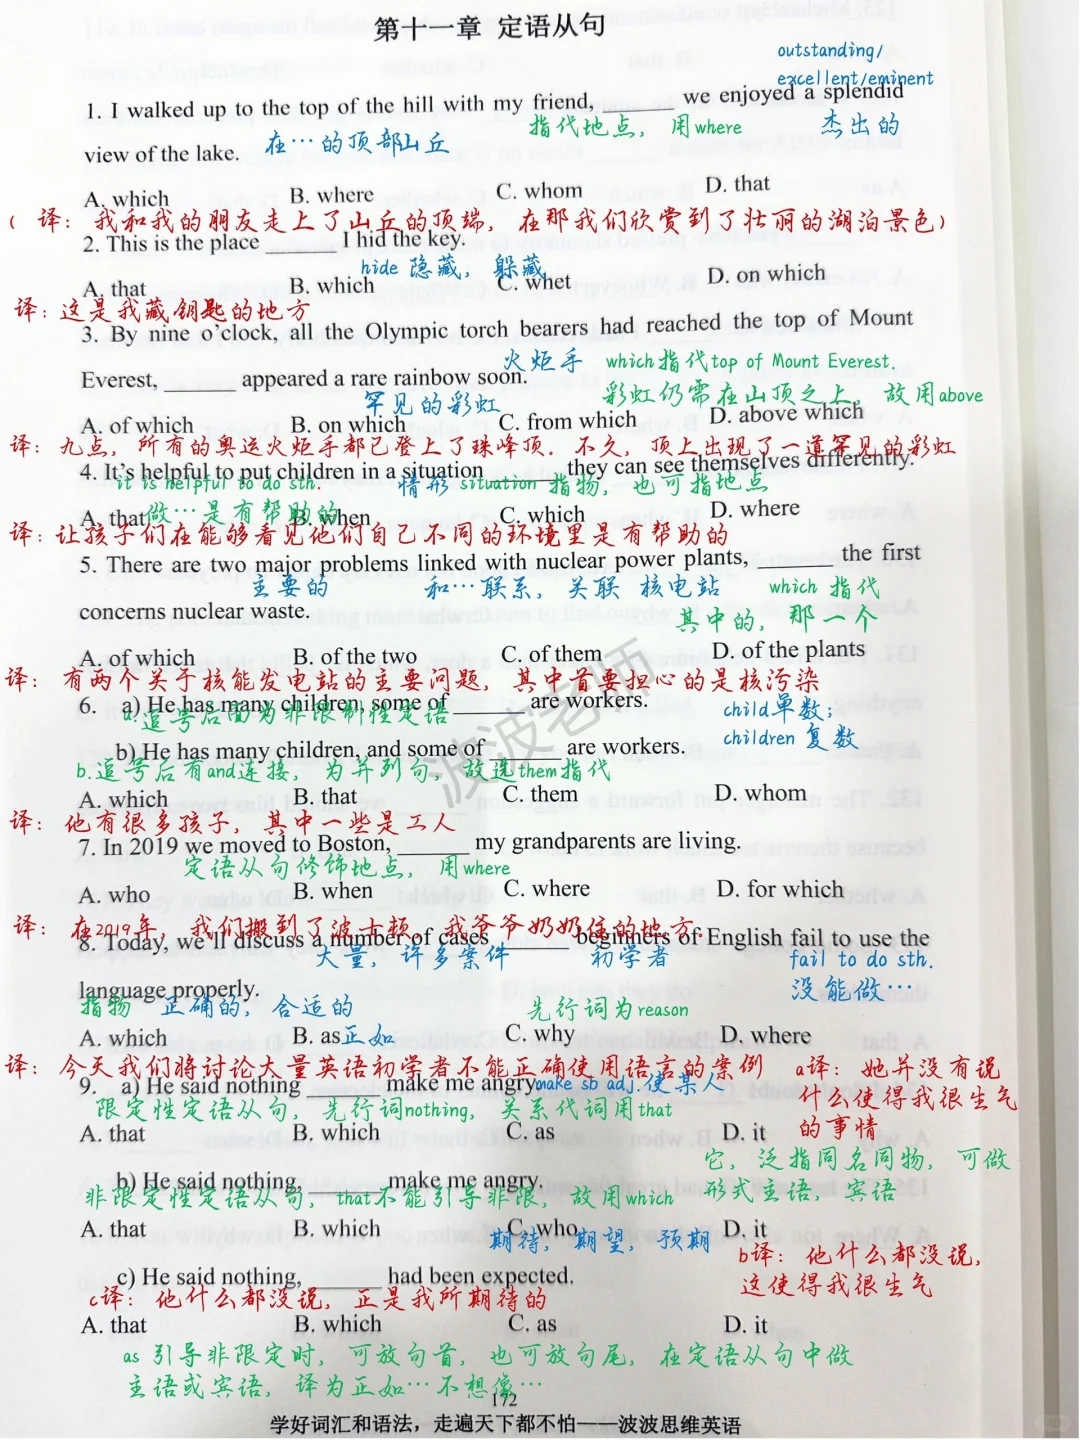 第十一章 定语从句
outstanding/
excellent/eminent
1. I walked up to the top of the hill with my friend, ______ we enjoyed a splendid
指代地点，用where 杰出的
在…的顶部山丘
view of the lake.
A. which B. where C. whom D. that
( 译：我和我的朋友走上了山丘的顶端，在那我们欣赏到了壮丽的湖泊景色)
2. This is the place ______ I hid the key.
hide 隐藏，躲藏
A. that B. which C. whet D. on which
译：这是我藏钥匙的地方
3. By nine o'clock, all the Olympic torch bearers had reached the top of Mount
火炬手 which指代top of Mount Everest.
Everest, ______ appeared a rare rainbow soon.
罕见的彩虹 彩虹仍需在山顶之上，故用above
A. of which B. on which C. from which D. above which
译：九点，所有的奥运火炬手都已登上了珠峰顶．不久，顶上出现了一道罕见的彩虹
4. It's helpful to put children in a situation ______ they can see themselves differently.
it is helpful to do sth. 情形 situation 指物，也可指地点
做…是有帮助的
A. that B. when C. which D. where
译：让孩子们在能够看见他们自己不同的环境里是有帮助的
5. There are two major problems linked with nuclear power plants, ______ the first
主要的 和…联系，关联 核电站 which 指代
concerns nuclear waste.
其中的，那一个
A. of which B. of the two C. of them D. of the plants
译：有两个关于核能发电站的主要问题，其中首要担心的是核污染
6. a) He has many children, some of ______ are workers.
a.逗号后面为非限制性定语 child单数；
children 复数
b) He has many children, and some of ______ are workers.
b.逗号后有and连接，为并列句，故选them指代
A. which B. that C. them D. whom
译：他有很多孩子，其中一些是工人
7. In 2019 we moved to Boston, ______ my grandparents are living.
定语从句修饰地点，用where
A. who B. when C. where D. for which
译：在2019年，我们搬到了波士顿，我爷爷奶奶住的地方．
8. Today, we'll discuss a number of cases ______ beginners of English fail to use the
大量，许多案件 初学者 fail to do sth.
language properly.
没能做…
指物 正确的，合适的 先行词为reason
A. which B. as正如 C. why D. where
译：今天我们将讨论大量英语初学者不能正确使用语言的案例
9. a) He said nothing ______ make me angry.
make sb adj.使某人
限定性定语从句，先行词nothing，关系代词用that
a译：她并没有说
什么使得我很生气
的事情
A. that B. which C. as D. it
它，泛指同名同物，可做
形式主语，宾语
b) He said nothing, ______ make me angry.
非限定性定语从句，that不能引导非限，故用which
A. that B. which C. who D. it
期待，期望，预期
b译：他什么都没说，
这使得我很生气
c) He said nothing, ______ had been expected.
c译：他什么都没说，正是我所期待的
A. that B. which C. as D. it
as 引导非限定时，可放句首，也可放句尾，在定语从句中做
主语或宾语，译为正如…不想像…
172
学好词汇和语法，走遍天下都不怕——波波思维英语
波波老师